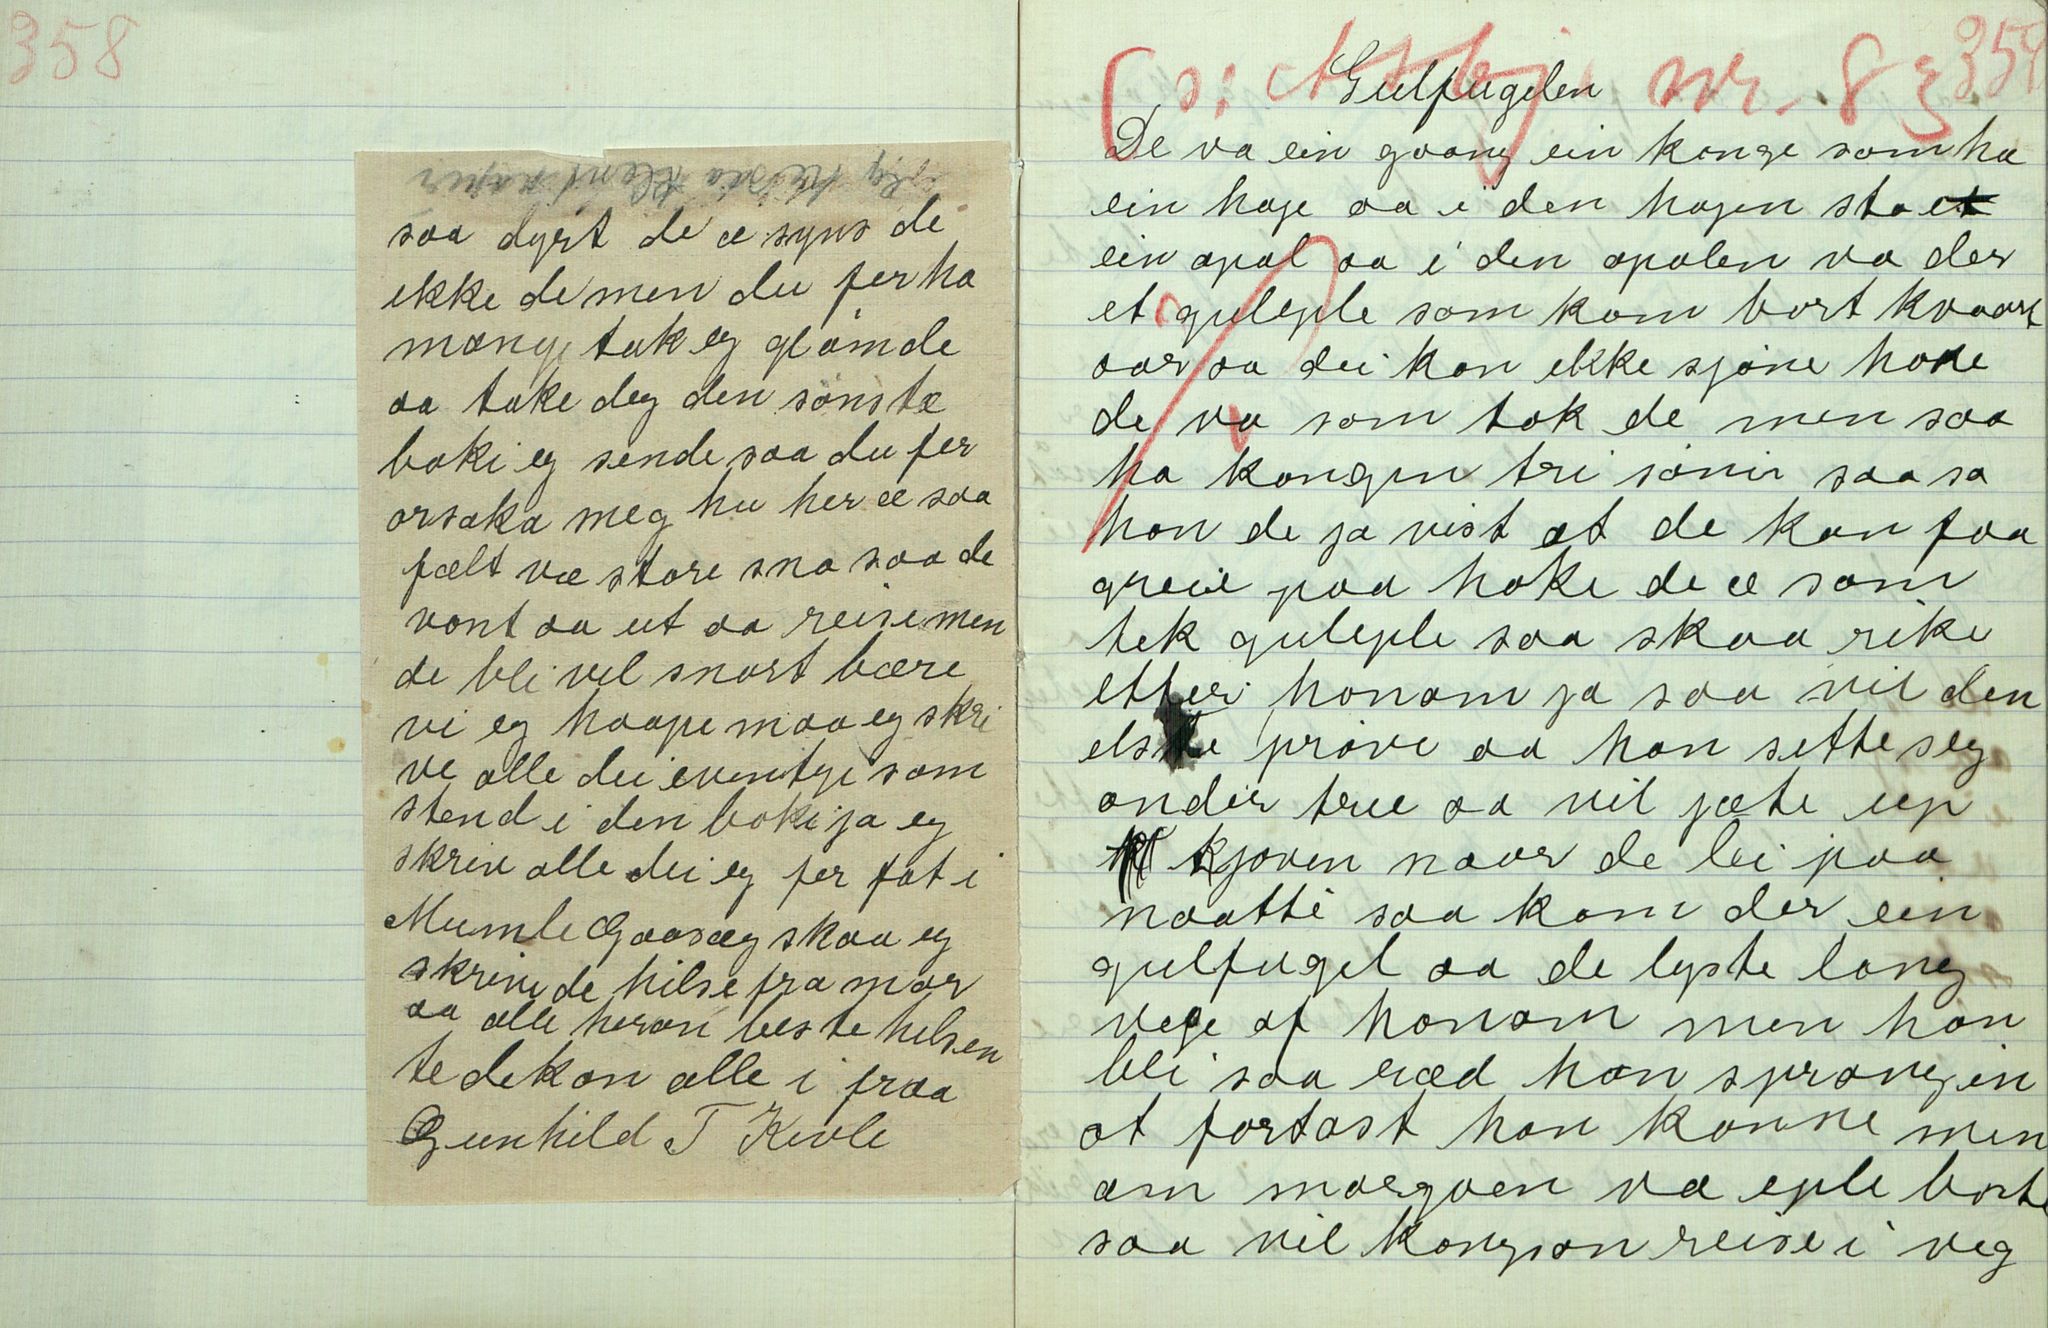 358
saa dyrt de æ syns de
ikke de men du fer ha
mange tak eg glömde
aa take deg den sönstæ
boki eg sende saa du fer
orsaka meg hu her æ saa
fælt væ store sno saa de
vont aa ut aa reise men
de bli vel snart bære
vi eg haape maa eg skri
ve alle dei eventye som
stend i den boki ja eg
skriv alle dei eg fer fat i
Mumle Gaasæg skaa eg
skrive de hilse fra mor
aa alle heran beste helsen
te dekan alle i fraa
Gunhild T Kivle
359
(s: Asbj nr. 83
Gulfugelen
De va ein goong ein konge som ha
ein hage aa i den hagen sto et
ein apal aa i den apalen va der
et guleple som kom bort kvaart
aar aa dei kan ikke sjöne hoke
de va som tok de men saa
ha kongen tri sönir saa sa
han de ja vist at de kan faa
greie paa hoke de æ som
tek guleple saa skaa rike
etter honom ja saa vil den
elste pröve aa han sette seg
ondir tree aa vil jæte up
tjoven naar de lei paa
naatti saa kom der ein
gulfugel aa de lyste long
vege af honom men han
bli saa ræd han sprong in
at fortast han konne men
om morgoen va eple borte
saa vil kongson reise i veg